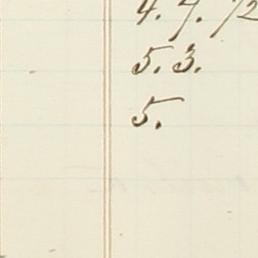 4. 7. 12
5. 3.
5.